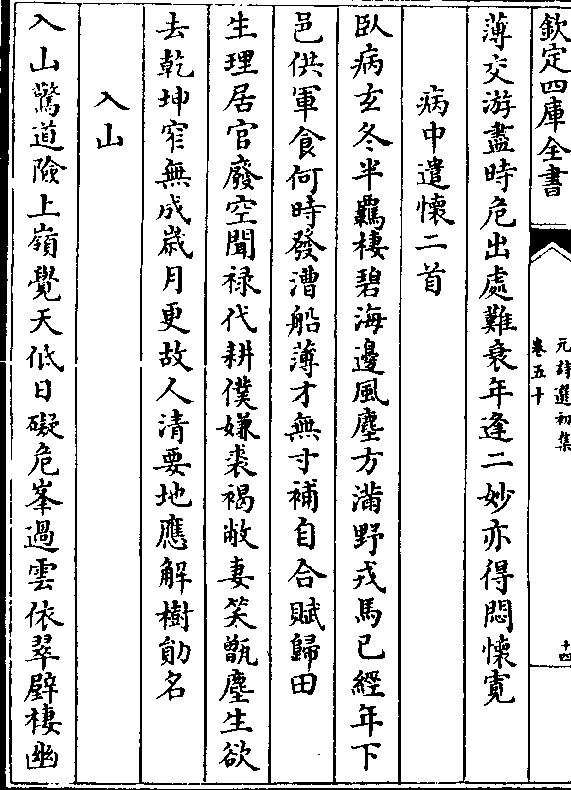 欽定四庫全書
元詩選初集
卷五十
十四
薄交游盡時危出處難衰年逢二妙亦得悶懷寛
病中遣懷二首
臥病玄冬半羈棲碧海邊風塵方滿野戎馬已經年下
邑供軍食何時發漕船薄才無寸補自合賦歸田
生理居官廢空聞禄代耕僕嫌裘褐敝妻笑甑塵生欲
去乾坤窄無成歲月更故人清要地應解樹勛名
入山
入山驚道險上嶺覺天低日礙危峯過雲依翠壁棲幽